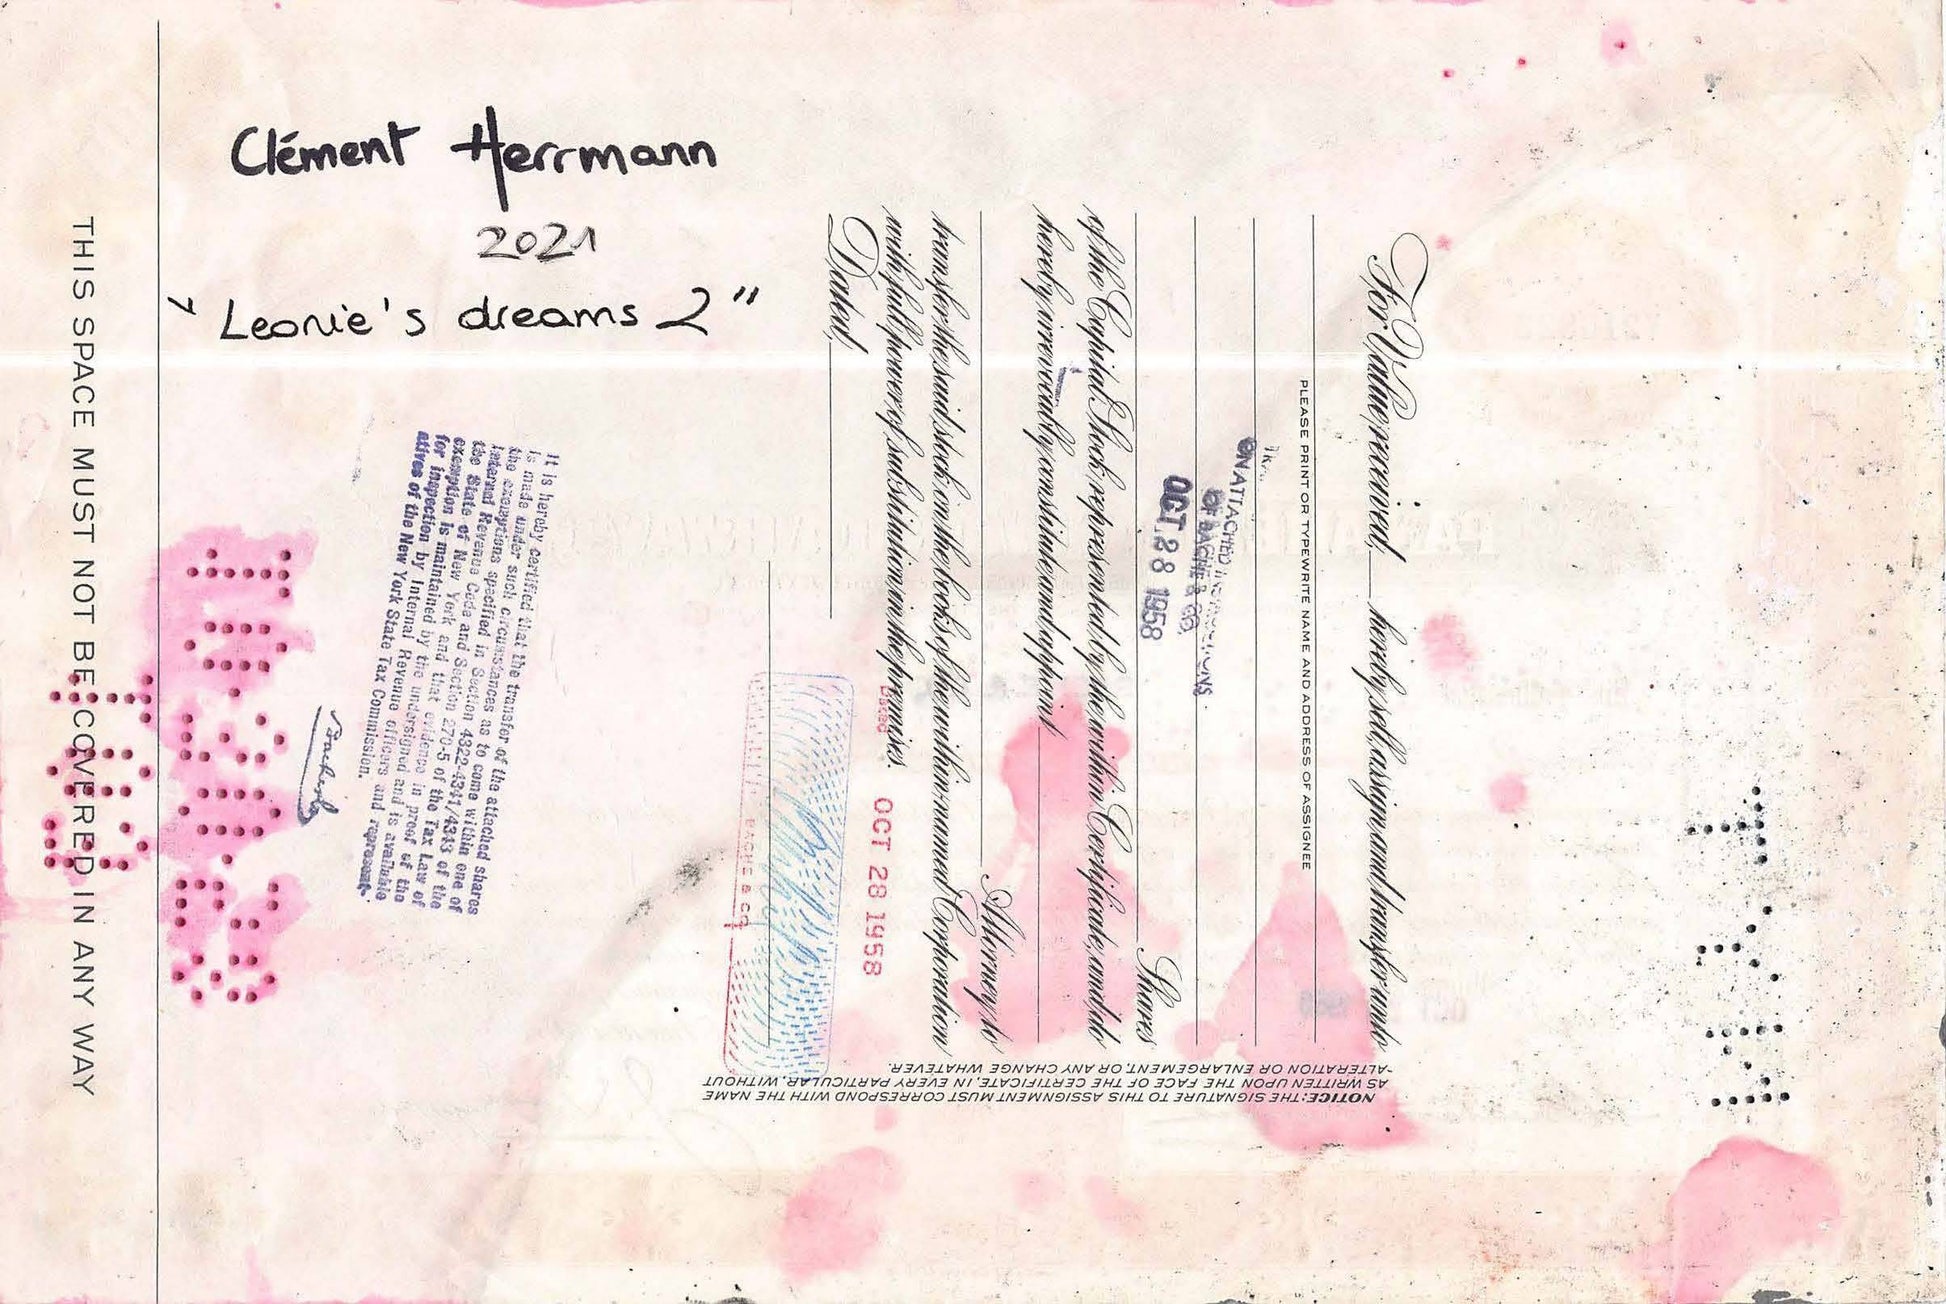 Clément Herrmann
2021
" Leonie's dreams 2 "
THIS SPACE MUST NOT BE COVERED IN ANY WAY
For Value received, hereby sell, assign and transfer unto
PLEASE PRINT OR TYPEWRITE NAME AND ADDRESS OF ASSIGNEE
UNATTACHED
OF BACHE & CO.
OCT 28 1958
Shares
of the Capital Stock represented by the within Certificate, and do
hereby irrevocably constitute and appoint
Attorney to
transfer the said stock on the books of the within-named Corporation
with full power of substitution in the premises.
Dated,
OCT 28 1958
BACHE & CO.
NOTICE: THE SIGNATURE TO THIS ASSIGNMENT MUST CORRESPOND WITH THE NAME
AS WRITTEN UPON THE FACE OF THE CERTIFICATE, IN EVERY PARTICULAR, WITHOUT
ALTERATION OR ENLARGEMENT, OR ANY CHANGE WHATEVER.
It is hereby certified that the transfer of the attached shares
is made under such circumstances as to come within one of
the exemptions specified in Section 4322-4341/4343 of the
Internal Revenue Code and Section 270-5 of the Tax Law of
the State of New York and that evidence in proof of the
exemption is maintained by the undersigned and is available
for inspection by Internal Revenue officers and represent-
atives of the New York State Tax Commission.